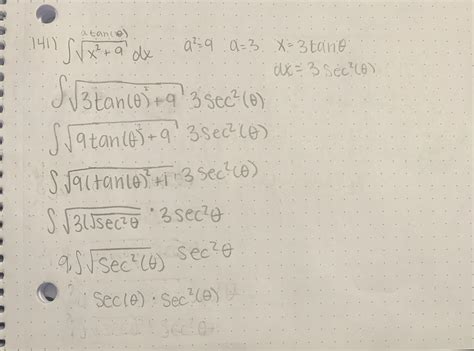 atan(θ)
141) ∫√(x²+9) dx a²=9 a=3 x=3tanθ
dx=3sec²(θ)
∫√(3tan(θ)²+9) 3sec²(θ)
∫√(9tan(θ)²+9) 3sec²(θ)
∫√(9(tan(θ)²+1) · 3sec²(θ)
∫√(3(√sec²θ · 3sec²θ
9∫√(sec²(θ)) sec²θ
sec(θ) · sec²(θ)